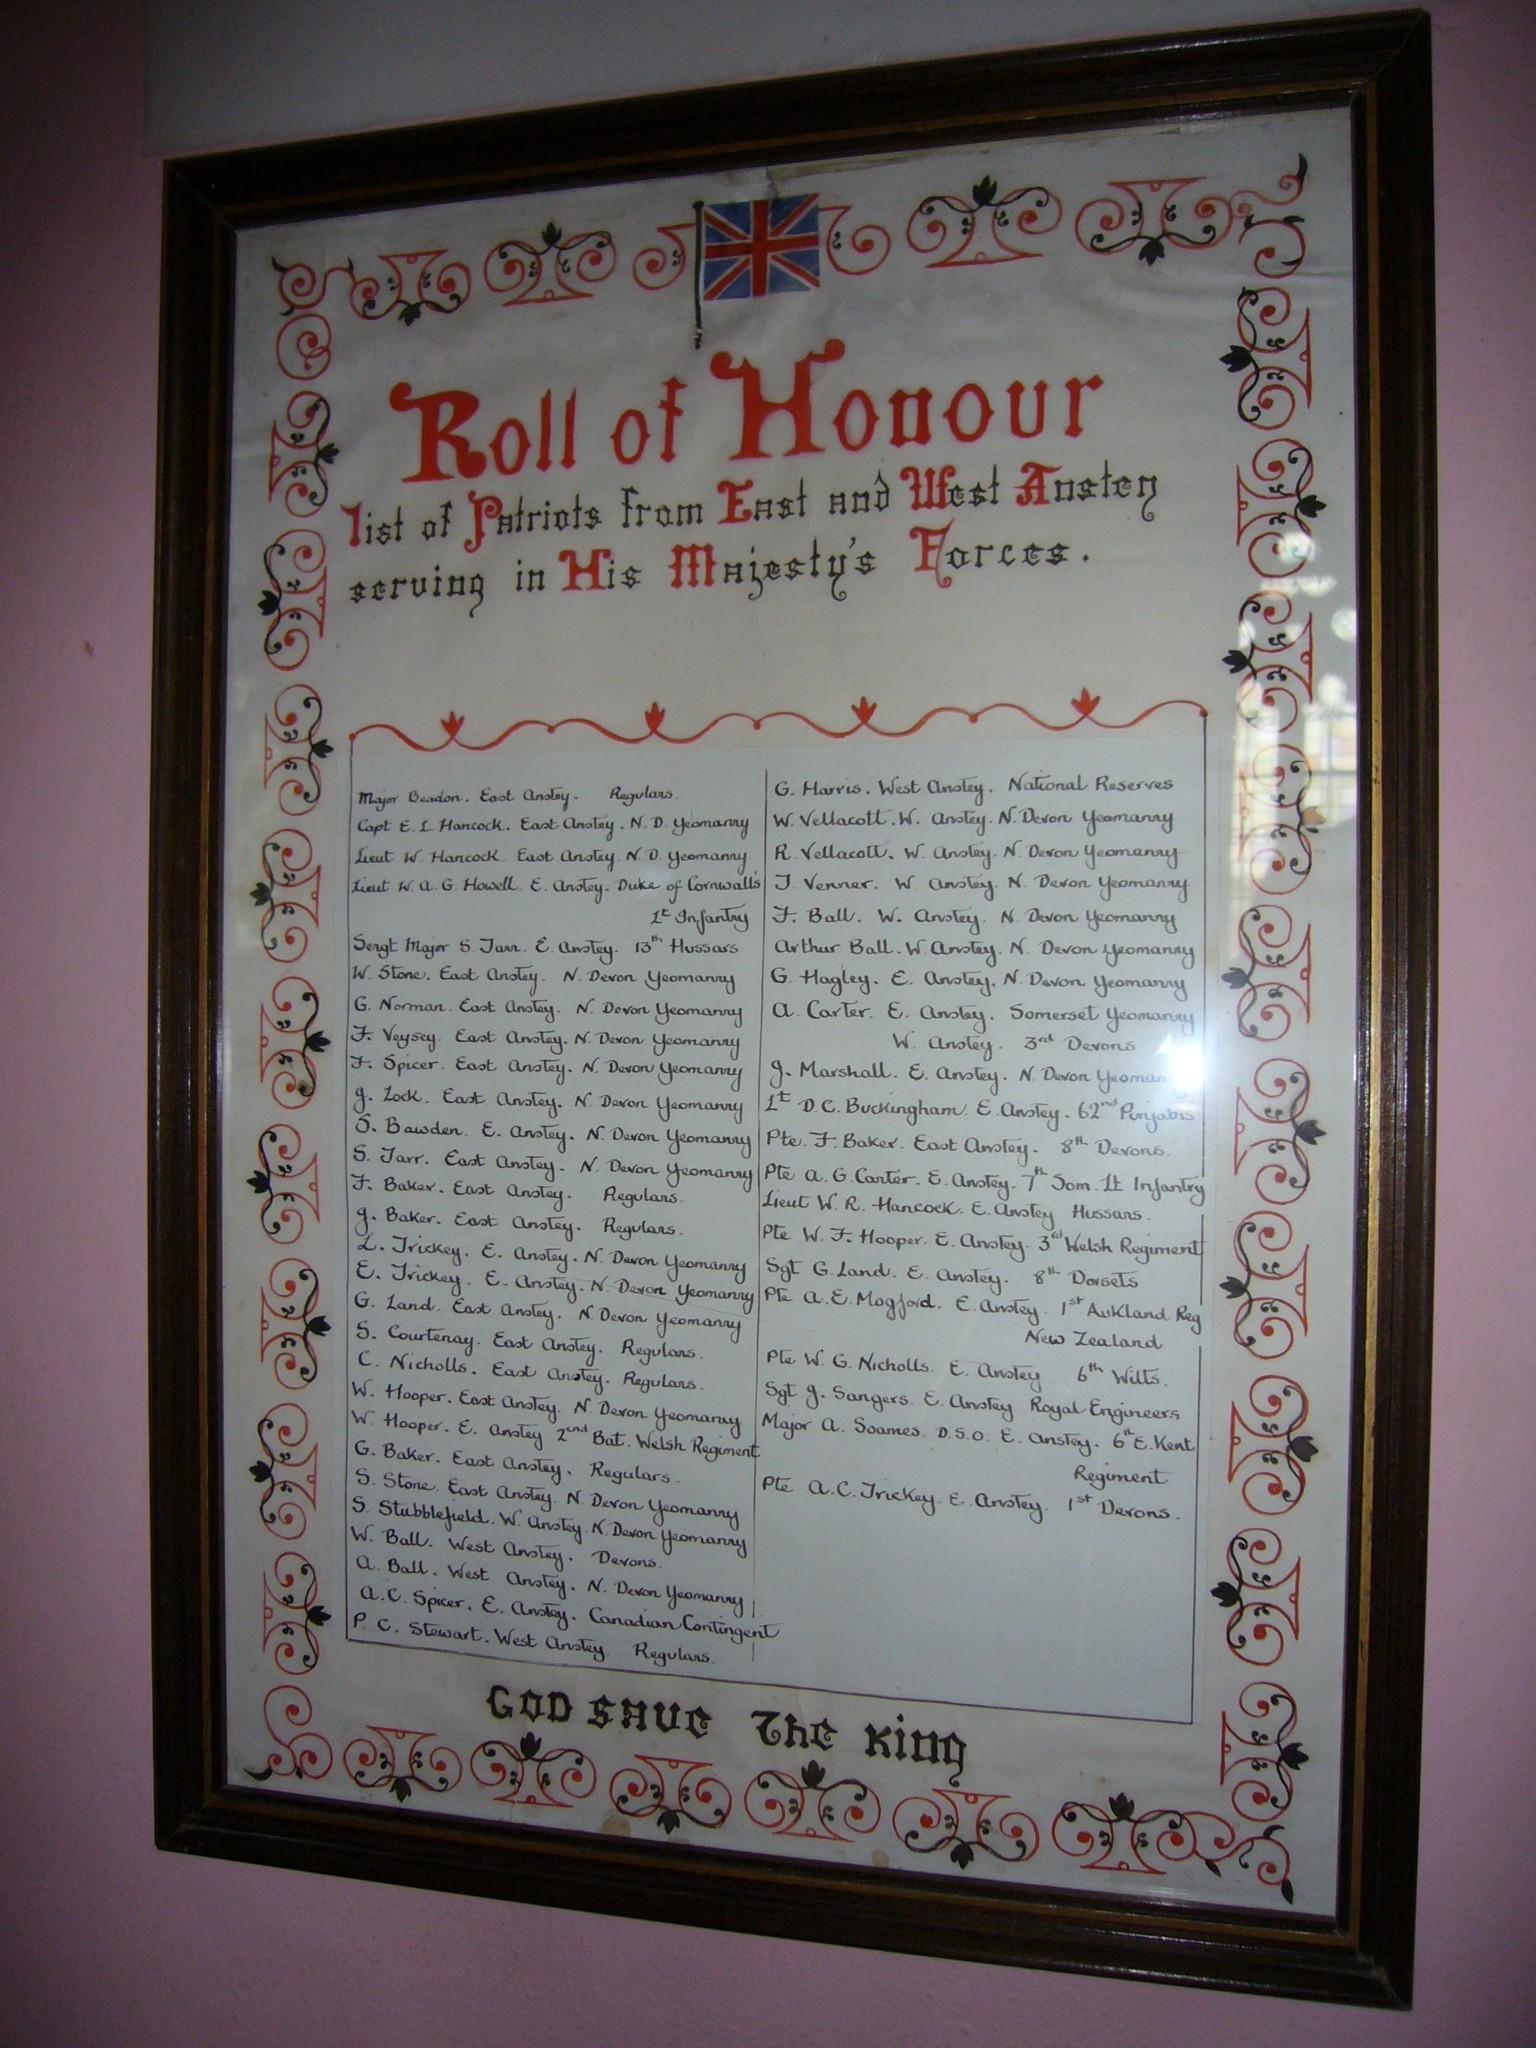 Roll of Honour
list of Patriots from East and West Anstey
serving in His Majesty's Forces.
Major Beadon. East Anstey. Regulars.
Capt E. L. Hancock. East Anstey. N. D. Yeomanry
Lieut W. Hancock. East Anstey. N. D. Yeomanry
Lieut W. A. G. Howell. E. Anstey. Duke of Cornwall's
Lt Infantry
Sergt Major S. Tarr. E. Anstey. 13th Hussars
W. Stone. East Anstey. N. Devon Yeomanry
G. Norman. East Anstey. N. Devon Yeomanry
F. Veysey. East Anstey. N. Devon Yeomanry
F. Spicer. East Anstey. N. Devon Yeomanry
J. Lock. East Anstey. N. Devon Yeomanry
S. Bawden. E. Anstey. N. Devon Yeomanry
S. Tarr. East Anstey. N. Devon Yeomanry
F. Baker. East Anstey. Regulars.
J. Baker. East Anstey. Regulars.
L. Trickey. E. Anstey. N. Devon Yeomanry
E. Trickey. E. Anstey. N. Devon Yeomanry
G. Land. East Anstey. N. Devon Yeomanry
S. Courtenay. East Anstey. Regulars.
C. Nicholls. East Anstey. Regulars.
W. Hooper. East Anstey. N. Devon Yeomanry
W. Hooper. E. Anstey 2end Bat. Welsh Regiment
G. Baker. East Anstey. Regulars.
S. Stone. East Anstey. N. Devon Yeomanry
S. Stubblefield. W. Anstey. N. Devon Yeomanry
W. Ball. West Anstey. Devons.
A. Ball. West Anstey. N. Devon Yeomanry
A. C. Spicer. E. Anstey. Canadian Contingent
P. C. Stewart. West Anstey. Regulars.
G. Harris. West Anstey. National Reserves
W. Vellacott. W. Anstey. N. Devon Yeomanry
R. Vellacott. W. Anstey. N. Devon Yeomanry
T. Venner. W. Anstey. N. Devon Yeomanry
F. Ball. W. Anstey. N. Devon Yeomanry
Arthur Ball. W. Anstey. N. Devon Yeomanry
G. Hagley. E. Anstey. N. Devon Yeomanry
A. Carter. E. Anstey. Somerset Yeomanry
W. Anstey. 3rd Devons
J. Marshall. E. Anstey. N. Devon Yeomanry
Lt D. C. Buckingham. E. Anstey. 62nd Punjabis
Pte. F. Baker. East Anstey. 8th Devons.
Pte A. G. Carter. E. Anstey. 7th Som. Lt Infantry
Lieut W. R. Hancock. E. Anstey Hussars.
Pte W. F. Hooper. E. Anstey. 3rd Welsh Regiment
Sgt G. Land. E. Anstey. 8th Dorsets
Pte A. E. Mogford. E. Anstey. 1st Aukland Reg
New Zealand
Pte W. G. Nicholls. E. Anstey 6th Wilts.
Sgt J. Sangers. E. Anstey Royal Engineers
Major A. Soames. D.S.O. E. Anstey. 6th E. Kent
Regiment
Pte A. C. Trickey. E. Anstey. 1st Devons.
GOD SAVE The KING